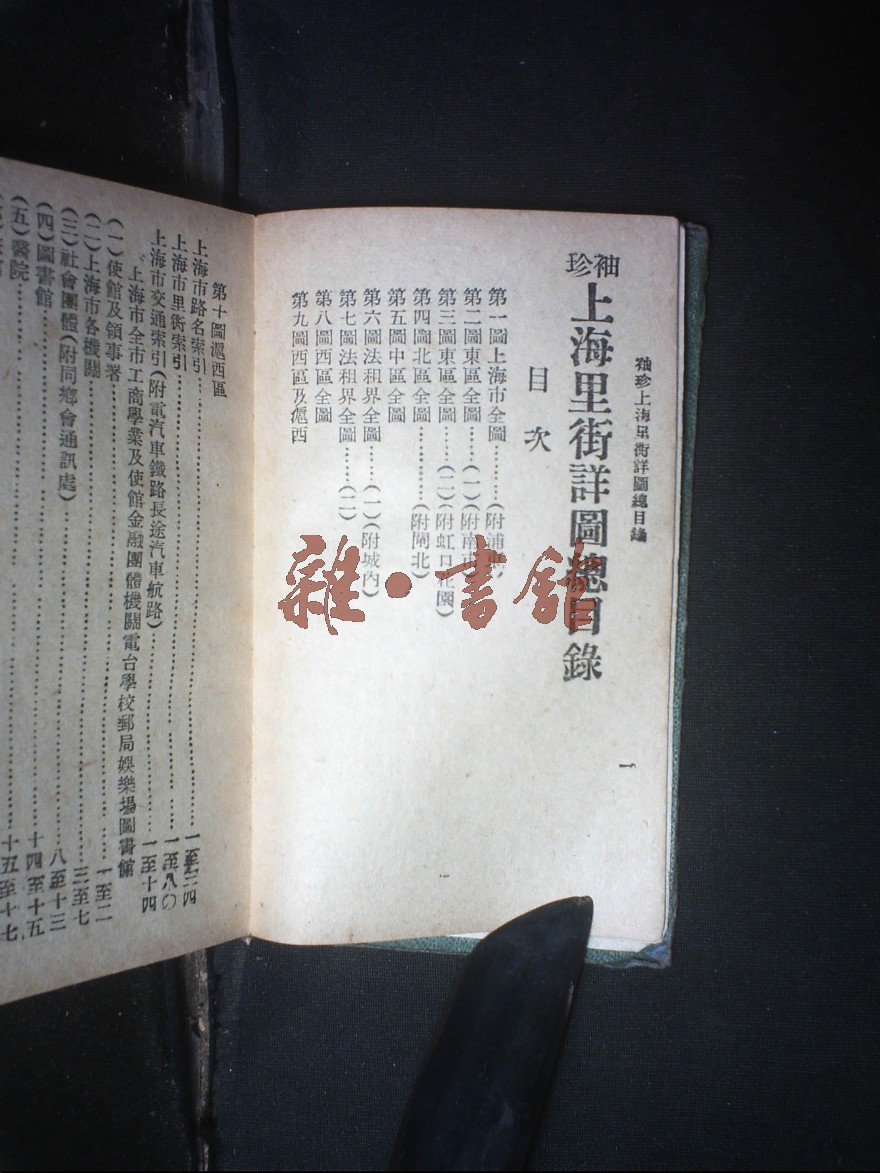 袖珍上海里衖詳圖總目錄
一
袖珍
上海里街詳圖總目錄
目次
第一圖上海市全圖……(附浦東)
第二圖東區全圖……(一)(附南市)
第三圖東區全圖……(二)(附虹口花園)
第四圖北區全圖……(附閘北)
第五圖中區全圖
第六圖法租界全圖……(一)(附城內)
第七圖法租界全圖……(二)
第八圖西區全圖
第九圖西區及滬西
第十圖滬西區
上海市路名索引……一至三四
上海市里衖索引……一至八〇
上海市交通索引(附電汽車鐵路長途汽車航路)……一至十四
上海市全市工商學業及使館金融團體機關電台學校郵局娛樂場圖書館
(一)使館及領事署……一至二
(二)上海市各機關……三至七
(三)社會團體(附同鄉會通訊處)……八至十三
(四)圖書館……十四至十五
(五)醫院……十五至十七
雜·書館